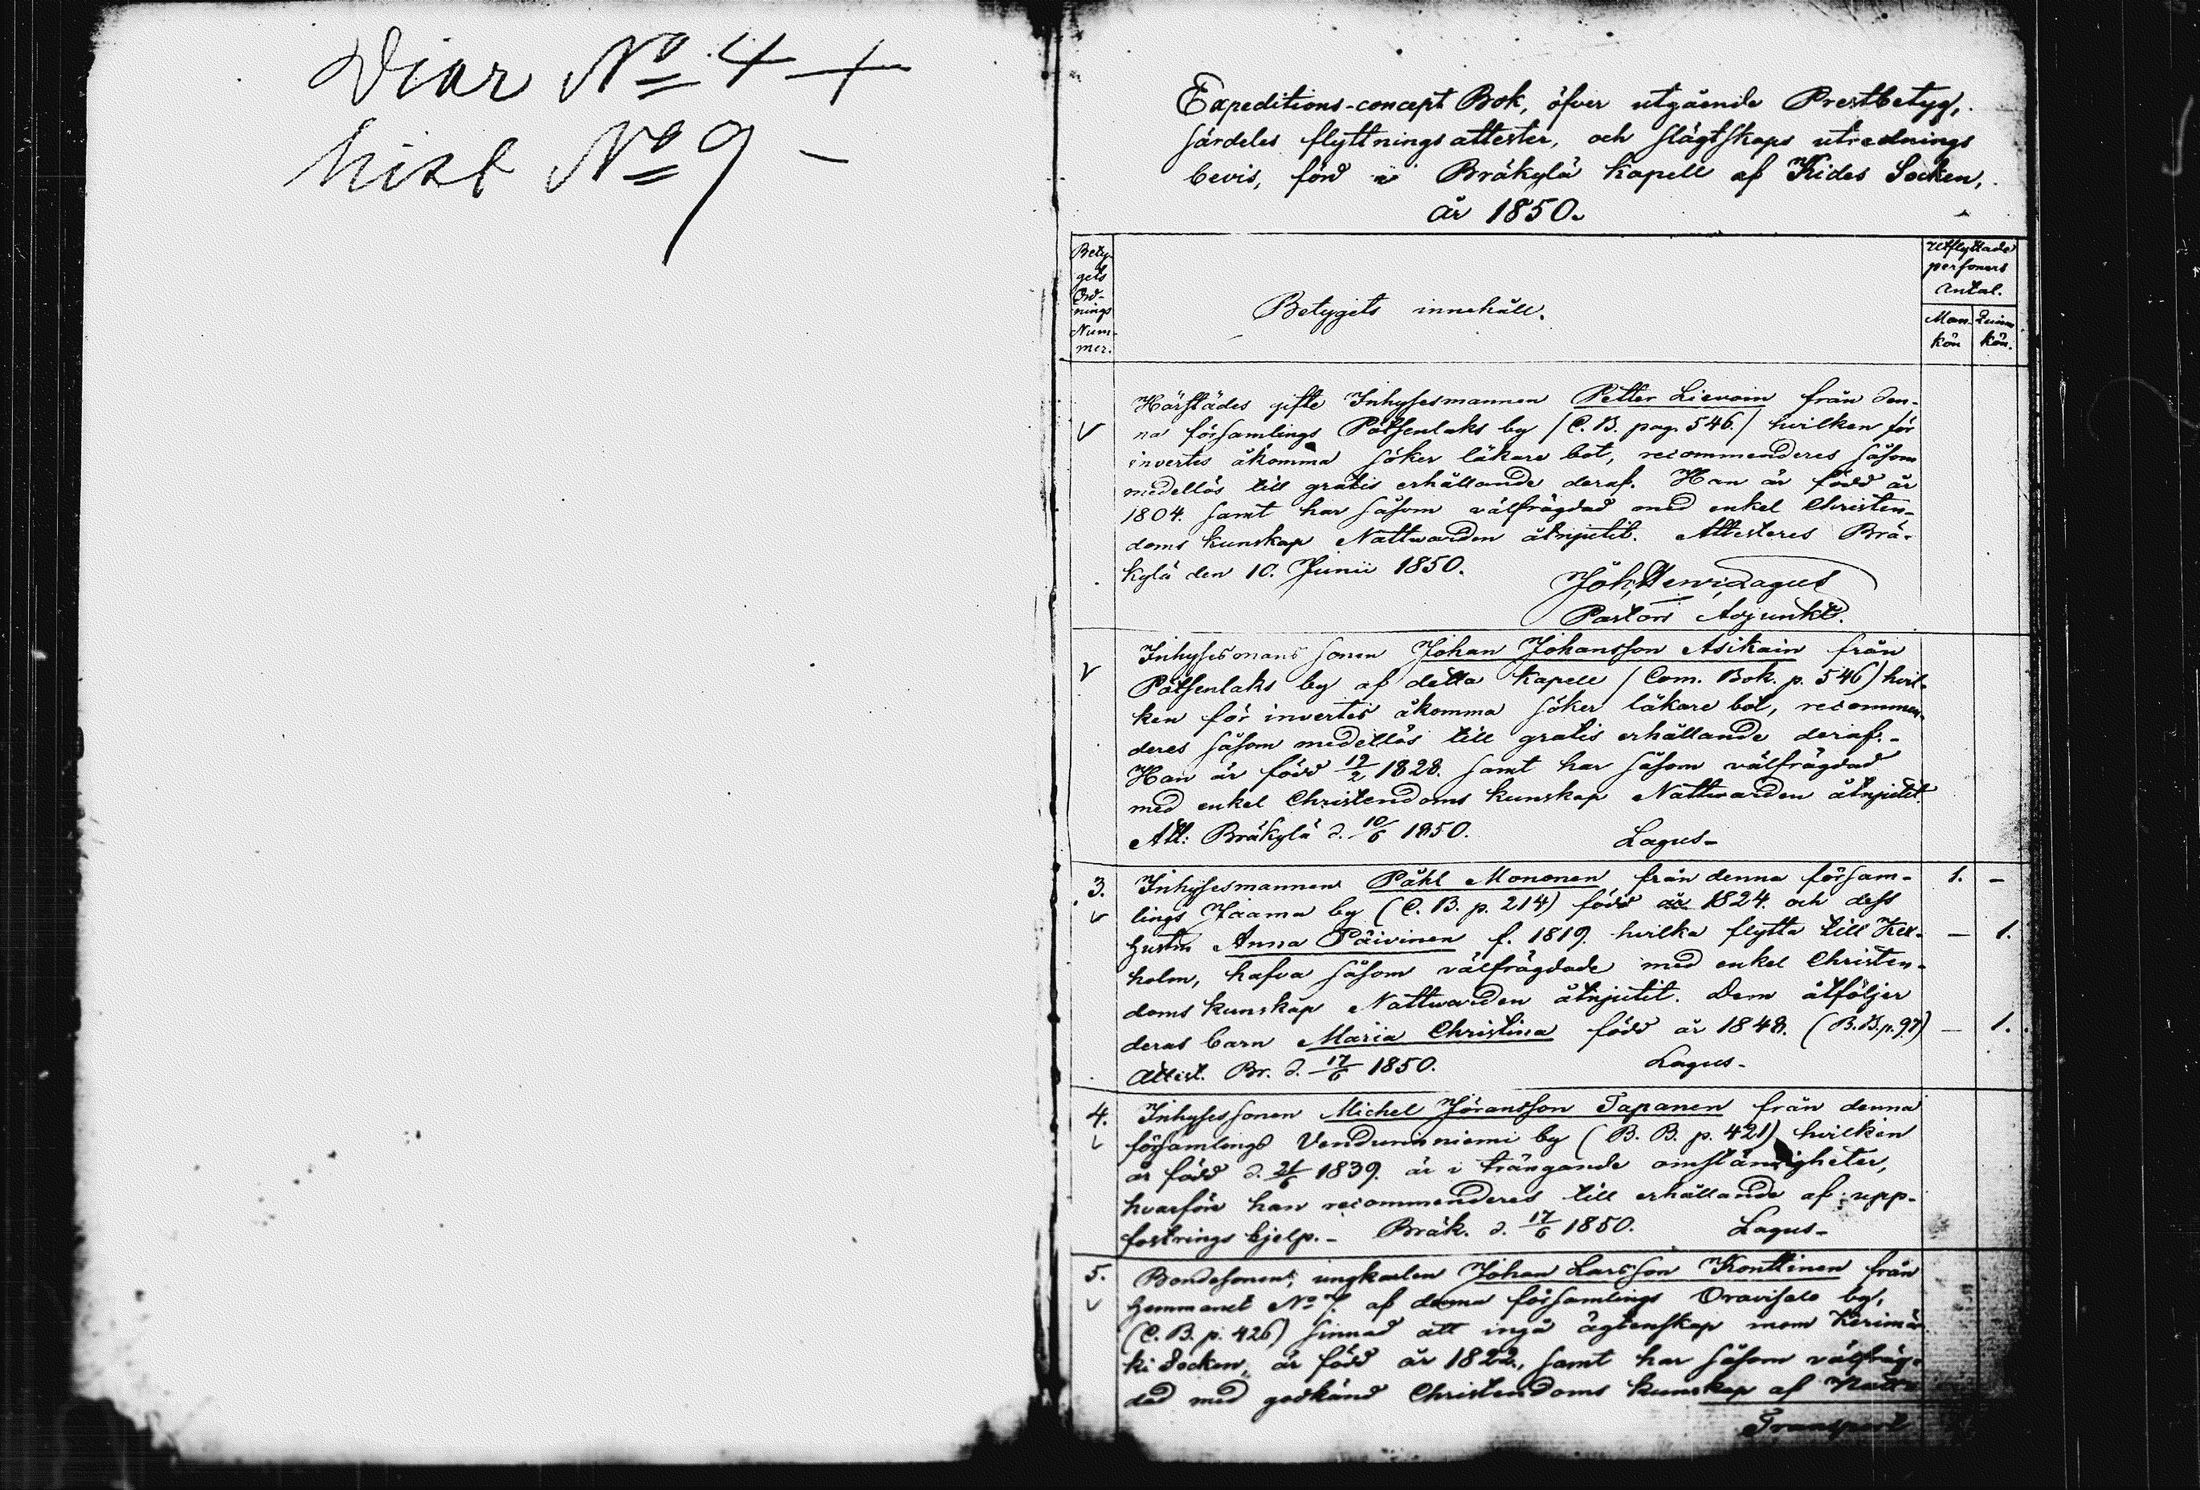 Diar No 4 +
hist No 9 -
Expeditions-concept Bok, öfver utgående Prestbetyg,
särdeles flyttningsattester, och slägtskaps utrednings
bevis, förd i Bräkylä Kapell af Kides Socken,
år 1850.
Bety-
gets
Ord-
nings
Num-
mer.
Betygets innehåll.
Utflyttade
personers
Antal.
Man-
kön
Quinn
kön.
Härstädes gifte Inhysesmannen Petter Lievoin från den-
na församlings Potsenlaks by (C. B. pag. 546.) hvilken för
invertes åkomma söker läkare bot, recommenderes såsom
medellös till gratis erhållande deraf. Han är född år
1804. samt har såsom välfrägdad med enkel Christen-
doms kunskap Nattvarden åtnjutit. Attesteres Brä-
kylä den 10. Junii 1850.
Joh, Henr, Lagus
Pastors Adjunkt.
Inhysesmans sonen Johan Johansson Asikain från
Potsenlaks by af detta Kapell (Com. Bok. p. 546) hvil-
ken för invertes åkomma söker läkare bot, recommen-
deres såsom medellös till gratis erhållande deraf.-
Han är född 12/2 1828. samt har såsom välfrägdad
med enkel Christendoms kunskap Nattvarden åtnjutit.
Att: Bräkylä d. 10/6 1850. Lagus-
3. Inhysesmannen Påhl Mononen från denna försam- 1. -
lings Jaama by (C. B. p. 214) född år 1824. och dess
hustru Anna Päivinen f. 1819. hvilka flytta till Kex- - 1.
holm, hafva såsom välfrägdade med enkel Christen-
doms kunskap Nattvarden åtnjutit. Dem åtföljer
deras barn Maria Christina född år 1848. (B.B.p.97) - 1.
Attest. Br. d. 17/6 1850. Lagus-
4. Inhysessonen Michel Jöransson Tapanen från denna
församlings Vendunniemi by (B. B. p. 421) hvilken
är född d. 21/6 1839. är i trängande omständigheter,
hvarföre han recommenderes till erhållande af upp-
fostrings hjelp.- Bräk. d. 17/6 1850. Lagus-
5. Bondesonen, ungkarlen Johan Larsson Konttinen från
hemmanet No 7 af denna församlings Oravisalo by,
(C. B. p. 426) sinnad att ingå ägtenskap inom Kerimä-
ki Socken, är född år 1822, samt har såsom välfräg-
dad med godkänd Christendoms kunskap af Natt-
Transport